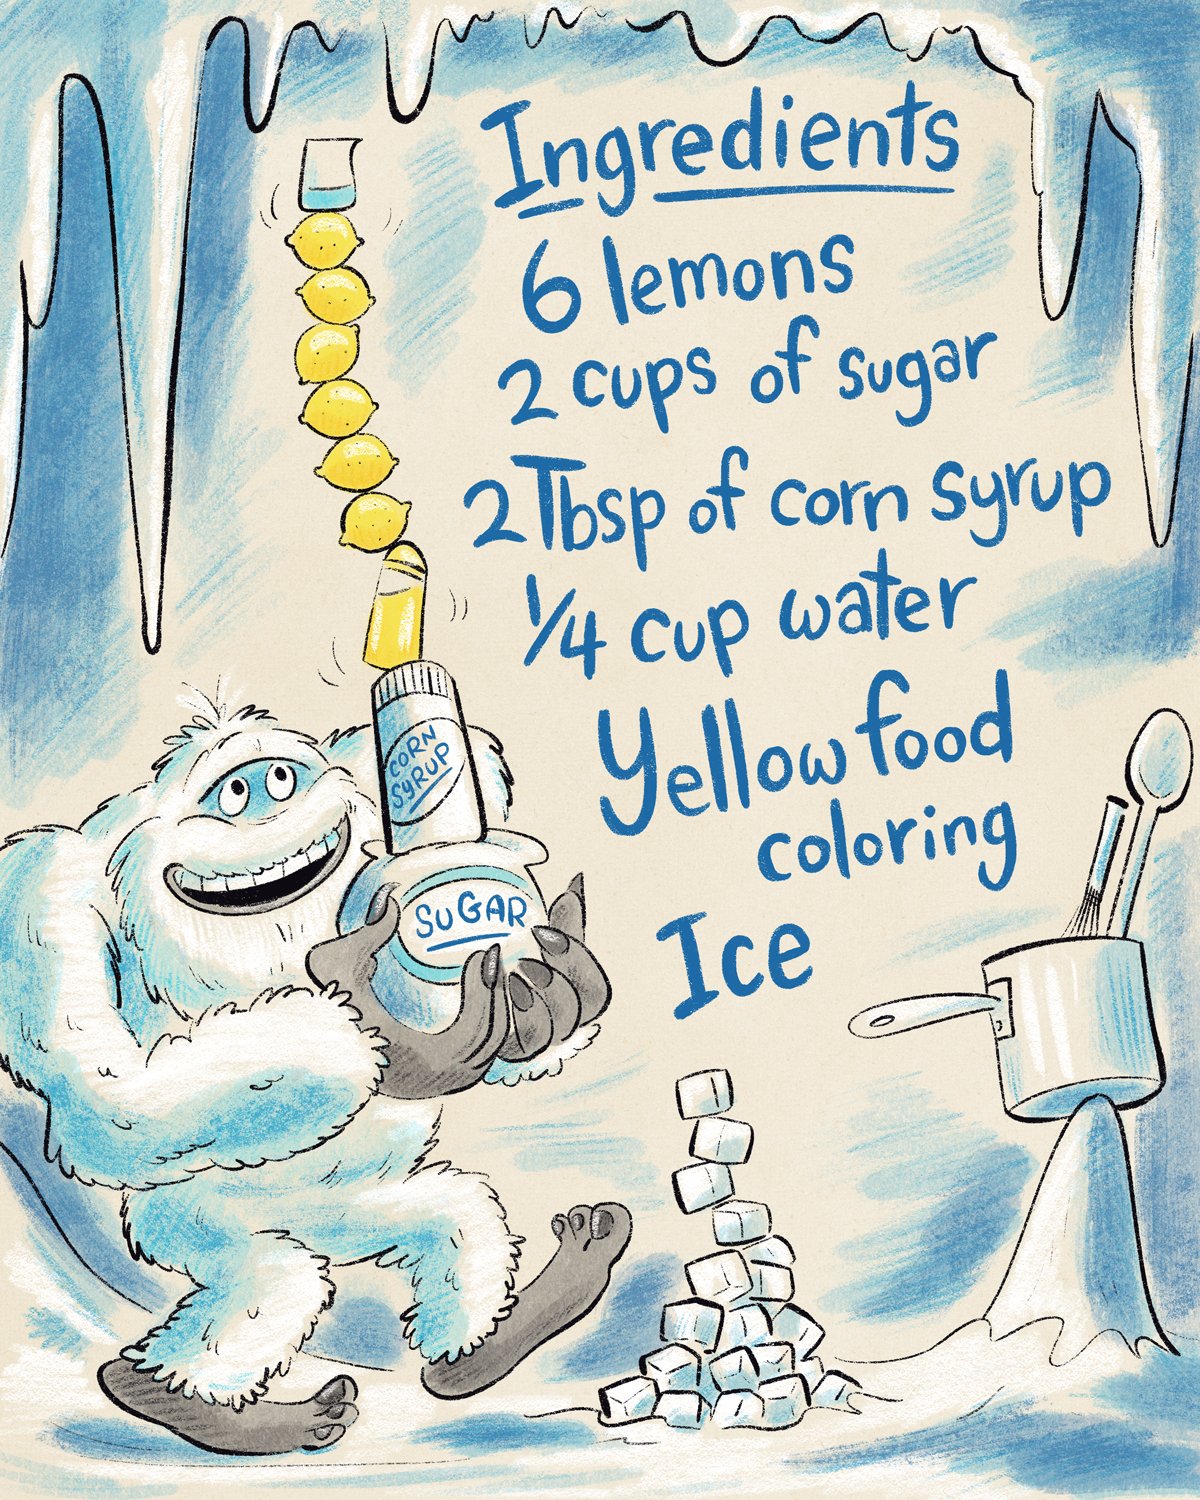 Ingredients
6 lemons
2 cups of sugar
2 Tbsp of corn syrup
1/4 cup water
Yellow food
coloring
Ice
CORN
SYRUP
SUGAR